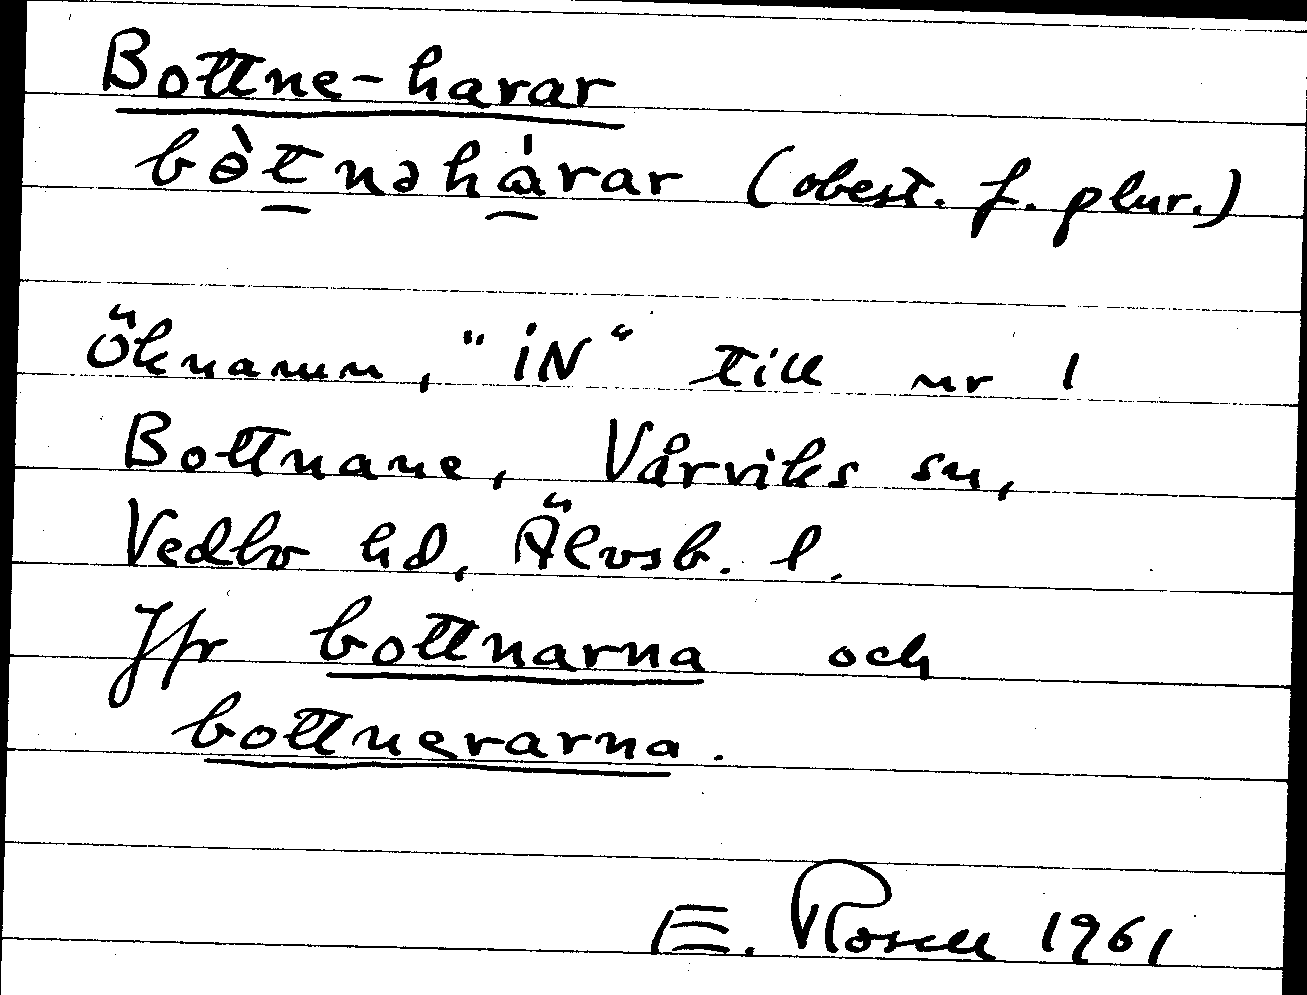 Bottne-harar
bòt̲nəhá̲rar (obest. f. plur.)
Öknamn, "iN" till nr 1
Bottnane, Vårviks sn,
Vedbo hd, Älvsb. l.
Jfr bottnarna och
bottnerarna.
E. Rosell 1961